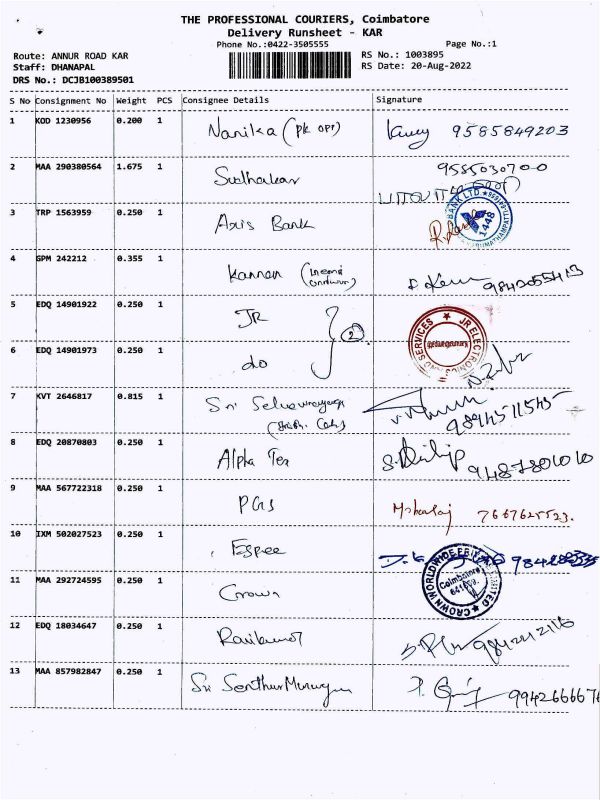 THE PROFESSIONAL COURIERS, Coimbatore
Delivery Runsheet - KAR
Phone No.:0422-3505555 Page No.:1
Route: ANNUR ROAD KAR RS No.: 1003895
Staff: DHANAPAL RS Date: 20-Aug-2022
DRS No.: DCJB100389501
S No Consignment No Weight PCS Consignee Details Signature
1 KOD 1230956 0.200 1 Nanika 9585849203
2 MAA 290380564 1.675 1 Sudhakar 9585030700
3 TRP 1563959 0.250 1 Axis Bank
BANK LTD. 1448
4 GPM 242212 0.355 1 Kannan
5 EDQ 14901922 0.250 1 JR
2
JR ELECTRONICS AND SERVICES
6 EDQ 14901973 0.250 1 do
7 KVT 2646817 0.815 1 Sri 9894511545
8 EDQ 20870803 0.250 1 Alpha Tex S. Dhilip 9487801010
9 MAA 567722318 0.250 1 PGS Mohanraj 7667625523.
10 IXM 502027523 0.250 1 Espee
CROWN WORLDWIDE PRIVATE LIMITED Coimbatore
11 MAA 292724595 0.250 1 Crown
12 EDQ 18034647 0.250 1 Ravikumar 9842112116
13 MAA 857982847 0.250 1 Sri Senthur Murugan 9942666676